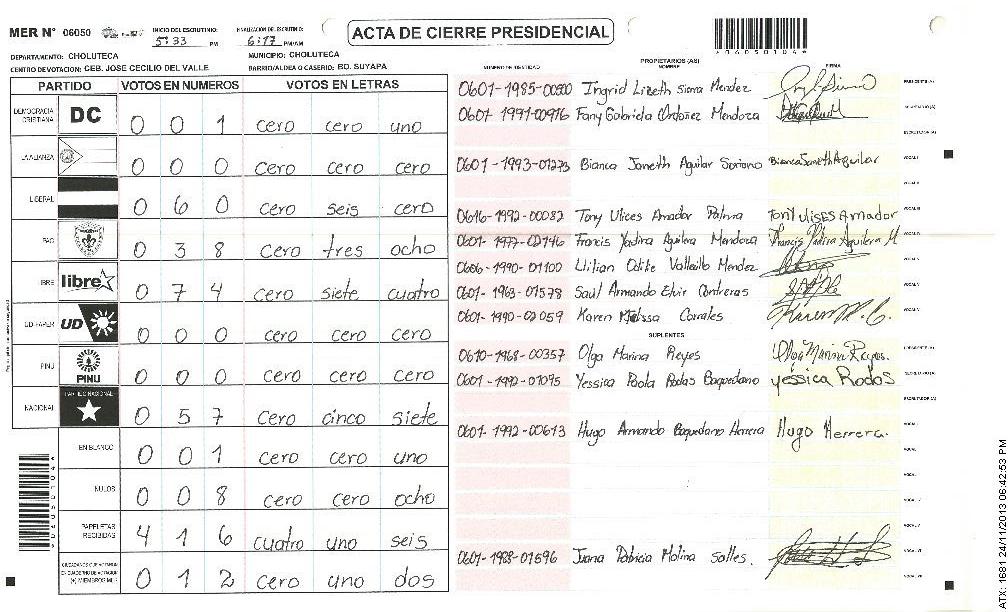 MER N° 06050
INICIO DEL ESCRUTINIO:
5:33 PM
FINALIZACION DEL ESCRUTINIO:
6:17 PM/AM
ACTA DE CIERRE PRESIDENCIAL
*06050104*
DEPARTAMENTO: CHOLUTECA
MUNICIPIO: CHOLUTECA
CENTRO DE VOTACION: CEB. JOSE CECILIO DEL VALLE
BARRIO/ALDEA O CASERIO: BO. SUYAPA
PARTIDO VOTOS EN NUMEROS VOTOS EN LETRAS
DEMOCRACIA CRISTIANA DC 0 0 1 cero cero uno
LA ALIANZA 0 0 0 cero cero cero
LIBERAL 0 6 0 cero seis cero
PAC 0 3 8 cero tres ocho
LIBRE libre 0 7 4 cero siete cuatro
UD-FAPER UD 0 0 0 cero cero cero
PINU PINU 0 0 0 cero cero cero
NACIONAL PARTIDO NACIONAL 0 5 7 cero cinco siete
EN BLANCO 0 0 1 cero cero uno
NULOS 0 0 8 cero cero ocho
PAPELETAS RECIBIDAS 4 1 6 cuatro uno seis
CIUDADANOS QUE VOTARON EN CUADERNO DE VOTACION (+) MIEMBROS MER 0 1 2 cero uno dos
PROPIETARIOS (AS)
NUMERO DE IDENTIDAD NOMBRE FIRMA
0601-1985-00500 Ingrid Lizeth Sierra Mendez PRESIDENTE (A)
0601-1991-00976 Fany Gabriela Ordoñez Mendoza SECRETARIO (A)
ESCRUTADOR (A)
0601-1993-01273 Bianca Janeth Aguilar Soriano Bianca Janeth Aguilar VOCAL I
VOCAL II
0616-1992-00082 Tony Ulices Amador Palma Tony ULISES Amador VOCAL III
0601-1977-02146 Francis Yadira Aguilera Mendoza Francis Yadira Aguilera M VOCAL IV
0606-1990-01100 Lilian Odite Vallecillo Mendez
0601-1963-01578 Saúl Armando Elvir Contreras VOCAL V
0601-1990-02059 Karen Melissa Corrales Karen M. C. VOCAL
SUPLENTES
0610-1968-00357 Olga Marina Reyes Olga Marina Reyes. PRESIDENTE (A)
0601-1992-01095 Yessica Paola Rodas Baquedano yessica Rodas SECRETARIO (A)
ESCRUTADOR (A)
0601-1992-00613 Hugo Armando Baquedano Herrera Hugo Herrera. VOCAL I
VOCAL
VOCAL
VOCAL
VOCAL V
0601-1988-01596 Juana Patricia Molina Salles. VOCAL VI
VOCAL VII
*06050104*
ATX: 1681 24/11/2013 06:42:53 PM